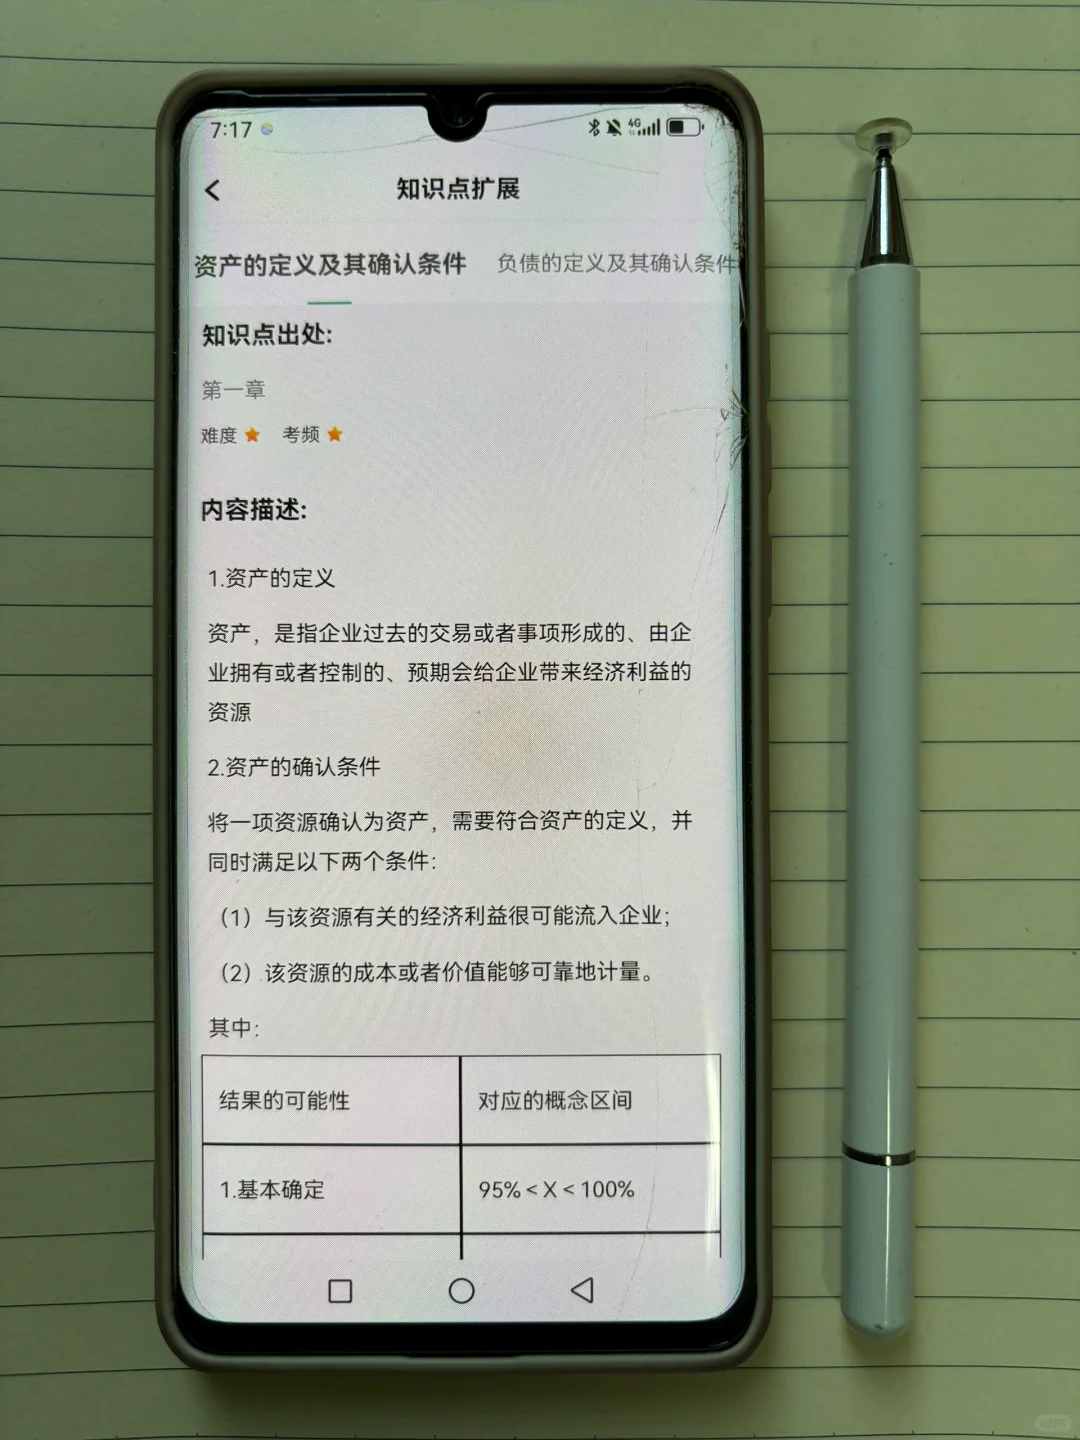 7:17
4G
知识点扩展
资产的定义及其确认条件 负债的定义及其确认条件
知识点出处:
第一章
难度 考频
内容描述:
1.资产的定义
资产，是指企业过去的交易或者事项形成的、由企
业拥有或者控制的、预期会给企业带来经济利益的
资源
2.资产的确认条件
将一项资源确认为资产，需要符合资产的定义，并
同时满足以下两个条件:
（1）与该资源有关的经济利益很可能流入企业;
（2）该资源的成本或者价值能够可靠地计量。
其中:
结果的可能性 对应的概念区间
1.基本确定 95%<X<100%